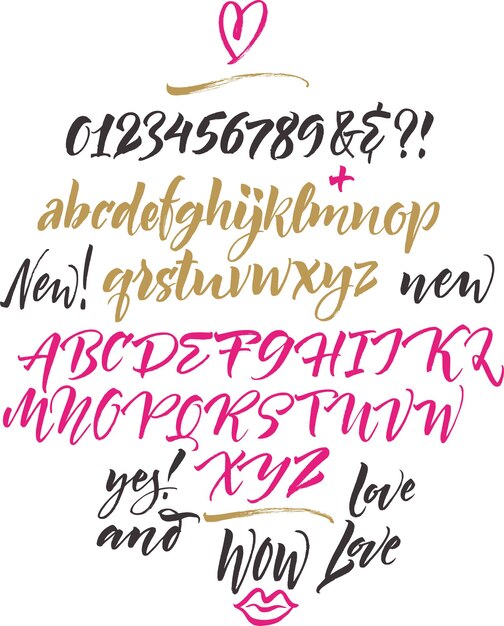 0123456789&&?!
+
abcdefghijklmnop
New! qrstuvwxyz new
ABCDEFGHIJKL
MNOPQRSTUVW
yes! XYZ love
and WOW Love